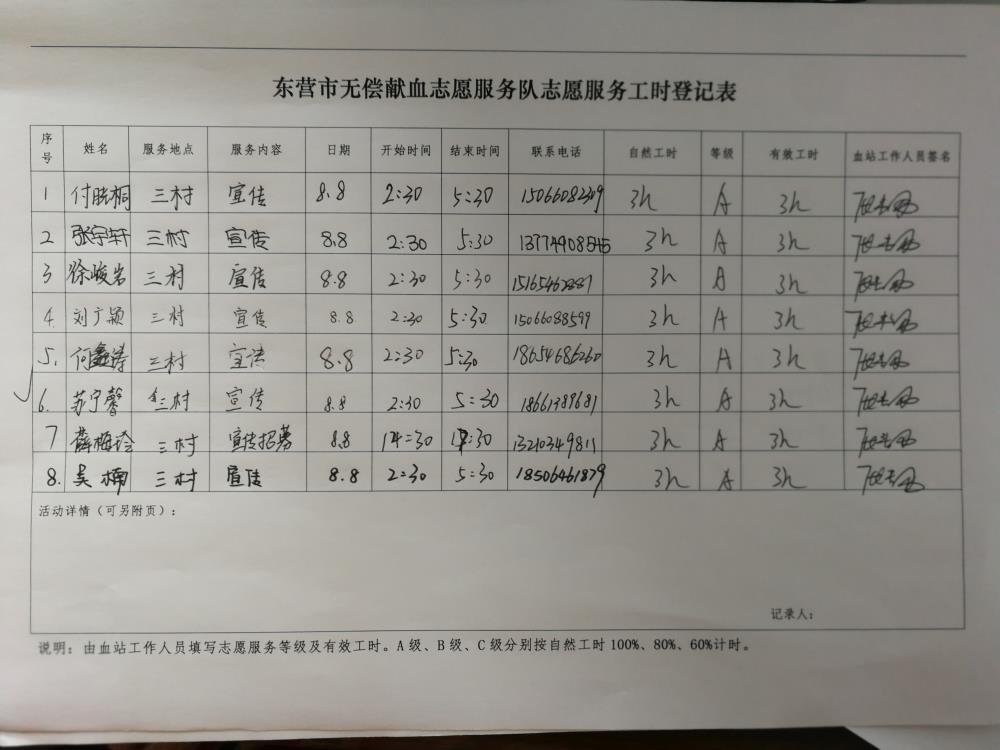 东营市无偿献血志愿服务队志愿服务工时登记表
序号 姓名 服务地点 服务内容 日期 开始时间 结束时间 联系电话 自然工时 等级 有效工时 血站工作人员签名
1 付胜桐 三村 宣传 8.8 2:30 5:30 15066082309 3h A 3h
2 张宇轩 三村 宣传 8.8 2:30 5:30 3h A 3h
3 徐峻岩 三村 宣传 8.8 2:30 5:30 15165462887 3h A 3h
4. 刘广颖 三村 宣传 8.8 2:30 5:30 15066088599 3h A 3h
5. 何鑫涛 三村 宣传 8.8 2:30 5:30 18654686260 3h A 3h
6. 苏宁馨 三村 宣传 8.8 2:30 5:30 18661389681 3h A 3h
7 薛梅玲 三村 宣传招募 8.8 14:30 17:30 13210349811 3h A 3h
8. 吴楠 三村 宣传 8.8 2:30 5:30 18506461879 3h A 3h
活动详情（可另附页）：
记录人：
说明：由血站工作人员填写志愿服务等级及有效工时。A 级、B 级、C 级分别按自然工时 100%、80%、60%计时。